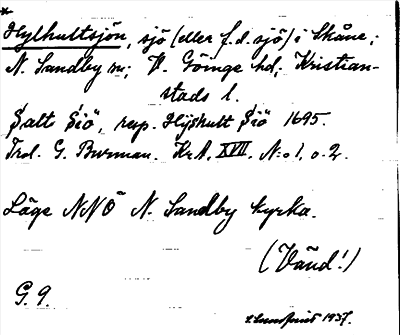 *
Hylhultsjön, sjö (eller f.d. sjö) i Skåne;
N. Sandby sn; V. Göinge hd; Kristian-
stads l.
Salt Siö, resp. Hÿshult Siö 1695.
Trol. G. Burman. Kr.A. XVII. N:o 1, o. 2.
Läge NNÖ N. Sandby kyrka.
(Vänd!)
G. 9.
1937.